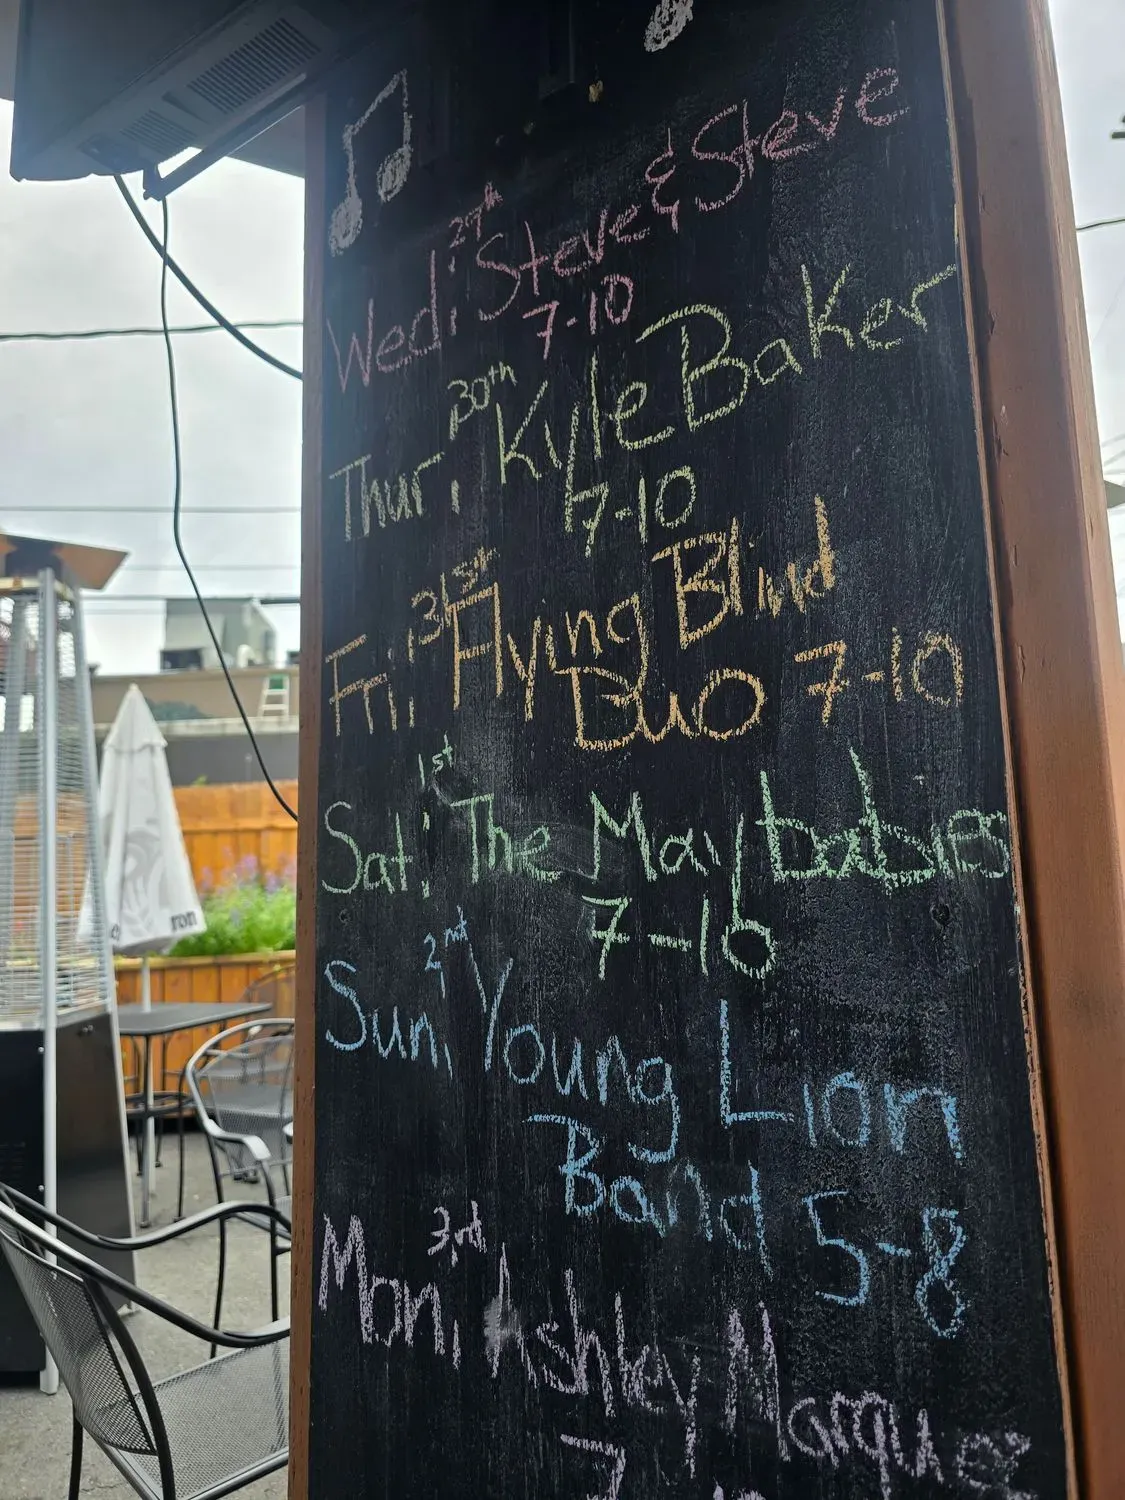 Wed: 29th Steve & Steve
7-10
Thur: 30th Kyle Baker
7-10
Fri: 31st Flying Blind
Duo 7-10
Sat: 1st The Maybabies
7-10
Sun: 2nd Young Lion
Band 5-8
Mon: 3rd Ashley Marquez
7
ron